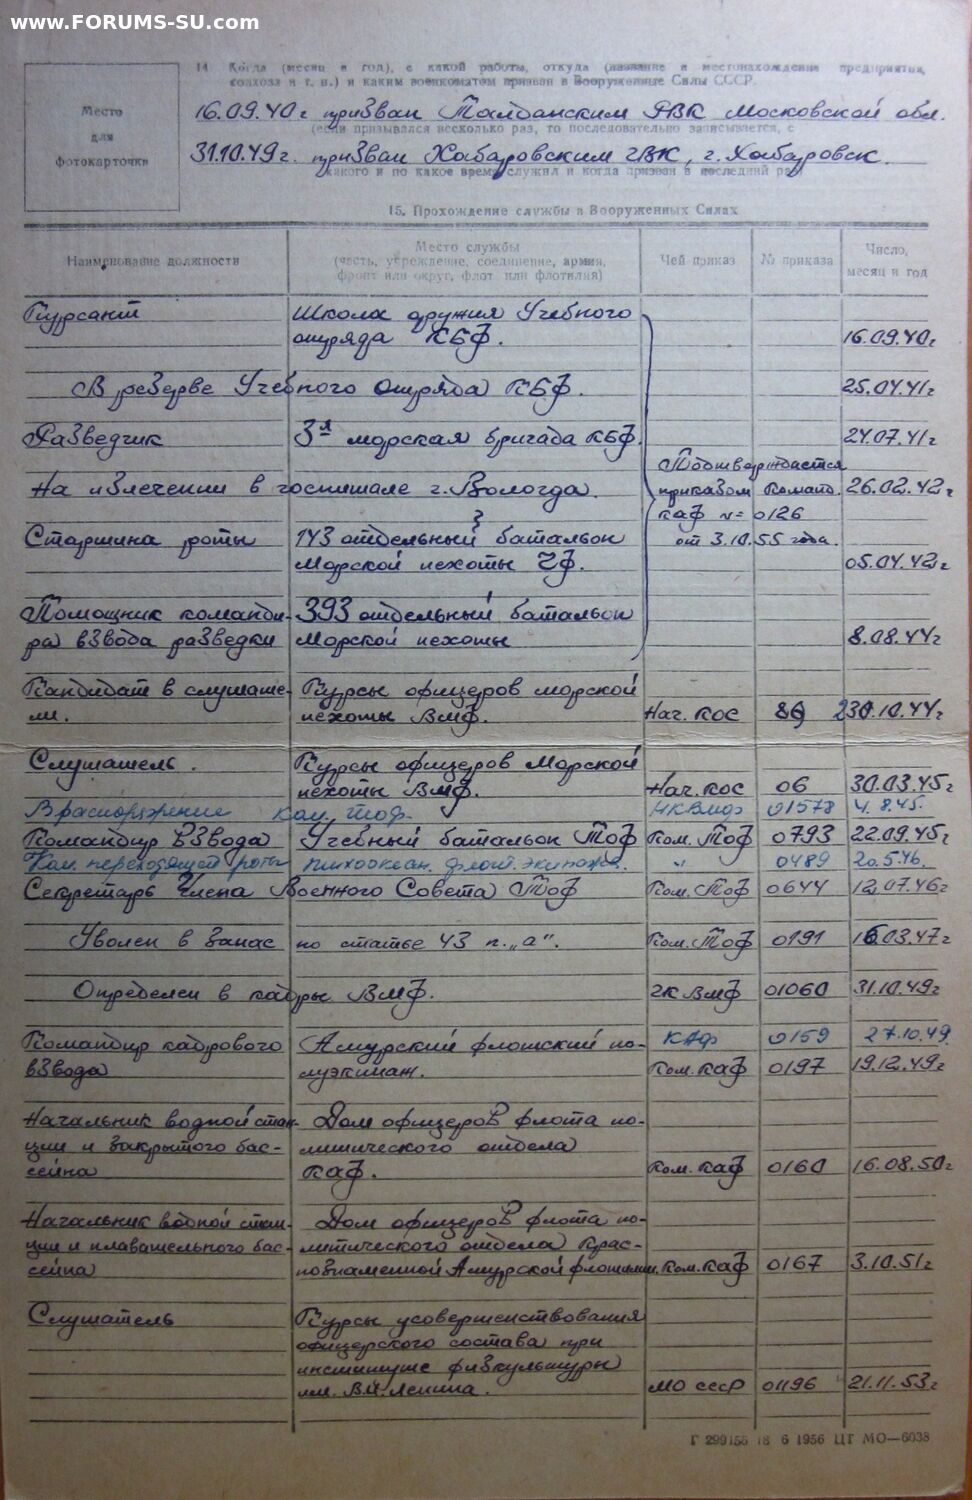 www.FORUMS-SU.com
14 Когда (месяц и год), с какой работы, откуда (название и местонахождение предприятия,
колхоза и т. п.) и каким военкоматом призван в Вооруженные Силы СССР.
Место
для
фотокарточки
16.09.40г призван Талдомским РВК Московской обл.
(если призывался несколько раз, то последовательно записывается, с
31.10.49г. призван Хабаровским ГВК, г. Хабаровск.
какого и по какое время служил и когда призван в последний раз)
15. Прохождение службы в Вооруженных Силах
Наименование должности
Место службы
(часть, учреждение, соединение, армия,
фронт или округ, флот или флотилия)
Чей приказ
№ приказа
Число,
месяц и год
Курсант
Школа оружия Учебного
отряда КБФ.
16.09.40г
В резерве Учебного отряда КБФ.
25.04.41г
Разведчик
3я морская бригада КБФ.
24.07.41г
Подтверждается
приказом Команд.
КАФ № 0126
от 3.10.55 года.
На излечении в госпитале г. Вологда.
26.02.42г
Старшина роты
143 отдельный батальон
Морской пехоты ЧФ.
05.04.42г
Помощник команди-
ра взвода разведки
393 отдельный батальон
Морской пехоты
8.08.44г
Кандидат в слушате-
ли.
Курсы офицеров морской
пехоты ВМФ.
Нач. КОС
30.10.44г
Слушатель.
Курсы офицеров Морской
пехоты ВМФ.
Нач. КОС
06
30.03.45г
В распоряжение Ком. ТОФ.
НКВМФ
01578
4.8.45.
Командир взвода
Учебный батальон ТОФ
Ком. ТОФ
0793
22.09.45г
Ком. переходящей роты
Тихоокеан. флот. экипажа.
"
0489
20.5.46.
Секретарь Члена Военного Совета ТОФ
Ком. ТОФ
0644
12.07.46г
Уволен в запас по статье 43 п. „а“.
Ком. ТОФ
0191
16.03.47г
Определен в кадры ВМФ.
ГК ВМФ
01060
31.10.49г
КАФ
0159
27.10.49
Командир кадрового
взвода
Амурский флотский по-
луэкипаж.
Ком. КАФ
0197
19.12.49г
Начальник водной стан-
ции и закрытого бас-
сейна
Дом офицеров флота по-
литического отдела
КАФ.
Ком. КАФ
0160
16.08.50г
Начальник водной стан-
ции и плавательного бас-
сейна
Дом офицеров флота по-
литического отдела Крас-
нознаменной Амурской флотилии.
Ком. КАФ
0167
3.10.51г
Слушатель
Курсы усовершенствования
офицерского состава при
институте физкультуры
им. В.И. Ленина.
МО СССР
01196
21.11.53г
Г 299155 18 6 1956 ЦТ МО—6038